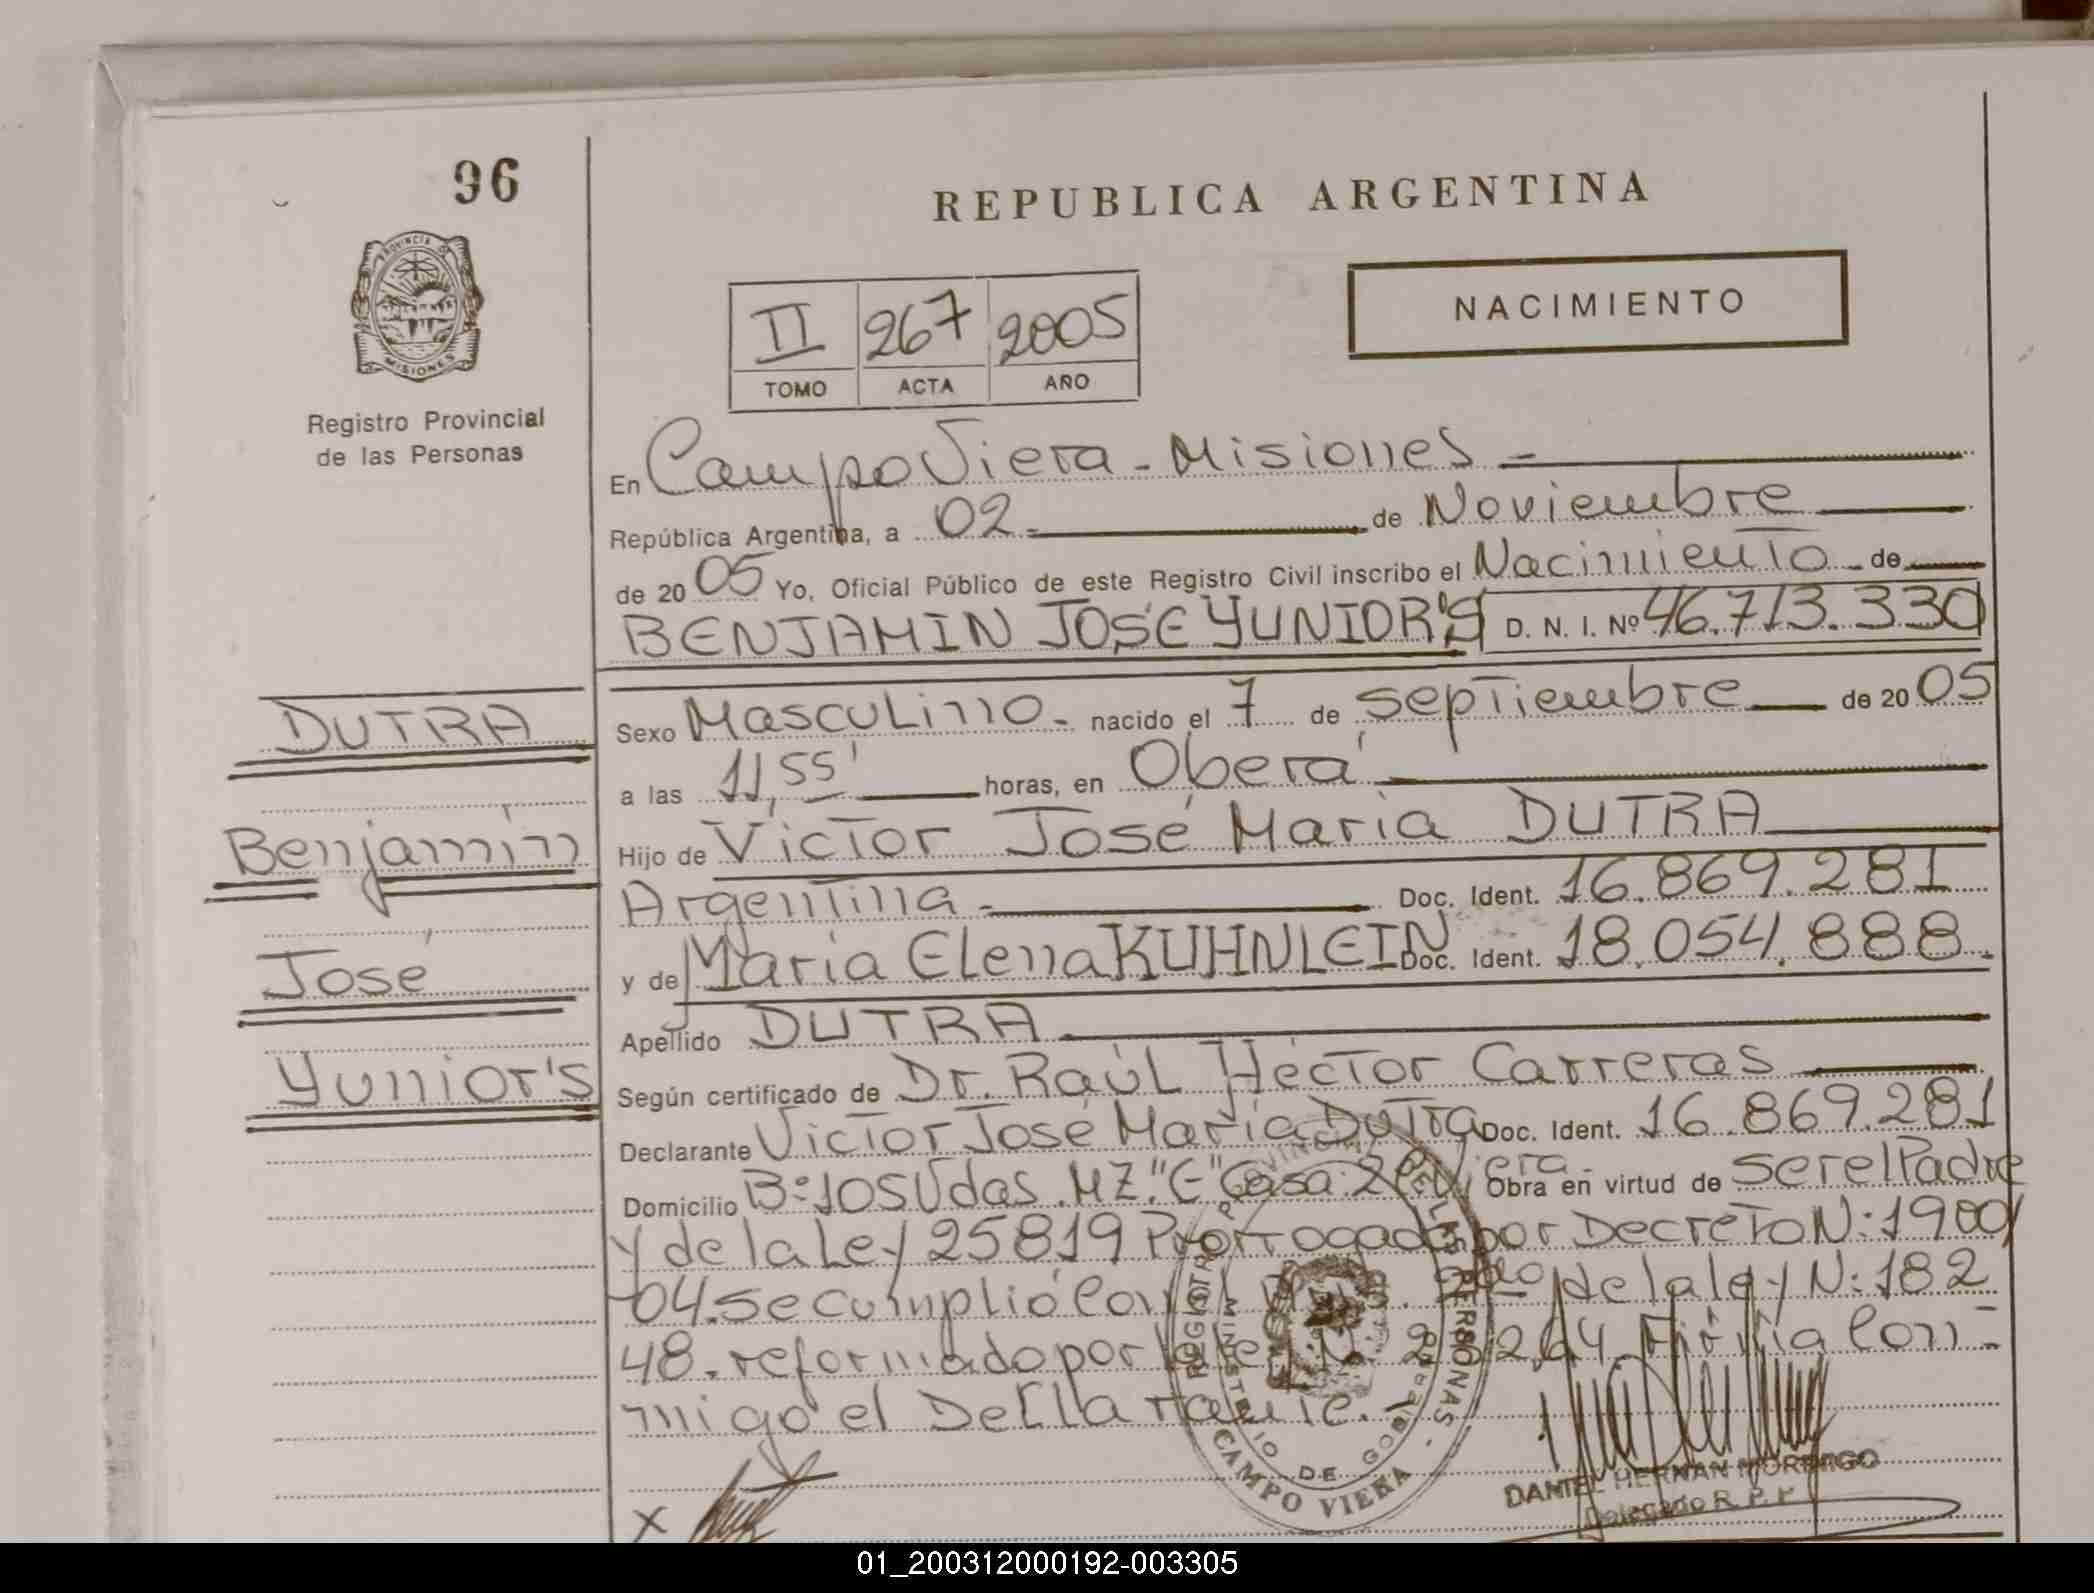 96
REPUBLICA ARGENTINA
PROVINCIA DE MISIONES
NACIMIENTO
II 267 2005
TOMO ACTA AÑO
Registro Provincial
de las Personas
En Campo Viera - Misiones
República Argentina, a 02 de Noviembre
de 2005 Yo, Oficial Público de este Registro Civil inscribo el Nacimiento de
BENJAMIN JOSÉ YUNIOR'S D. N. I. Nº 46.713.330
DUTRA
Sexo Masculino nacido el 7 de septiembre de 2005
a las 11,55' horas, en Oberá
Benjamín
Hijo de Víctor José María DUTRA
Argentina Doc. Ident. 16.869.281
José
y de María Elena KUHNLEIN Doc. Ident. 18.054.888
Apellido DUTRA
Yunior's
Según certificado de Dr. Raúl Héctor Carreras
Declarante Víctor José María Dutra Doc. Ident. 16.869.281
Domicilio Bº 10SUdas. MZ. "E" Casa 2 Viera Obra en virtud de ser el Padre
y de la Ley 25819 Prorrogada por Decreto N: 1900/
04. se cumplió Con de la ley N: 182
48. reformado por 264. Firma Con
migo el Declarante.
REGISTRO PROVINCIAL DE LAS PERSONAS
MINISTERIO DE GOBIERNO
CAMPO VIERA
X
DANIEL HERNAN MORINIGO
Delegado R. P. P.
01_200312000192-003305